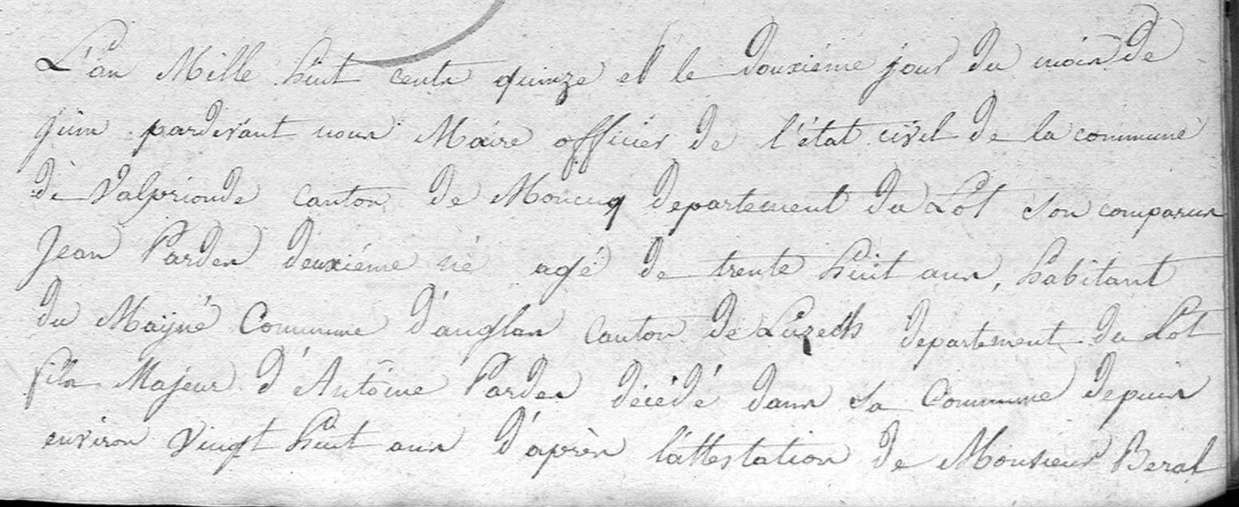 L'an Mille huit cents quinze et le douxiéme jour du mois de
juin pardevant nous Maire officier de l'état civil de la commune
de Valprionde canton de Moncuq departement du Lot son comparus
Jean Parden deuxiéme né agé de trente huit ans, habitant
du Mayné Commune d'anglars canton de Luzech departement du Lot
fils Majeur d'Antoine Parden décédé dans sa Commune depuis
environ vingt huit ans d'après l'attestation de Monsieur Beral